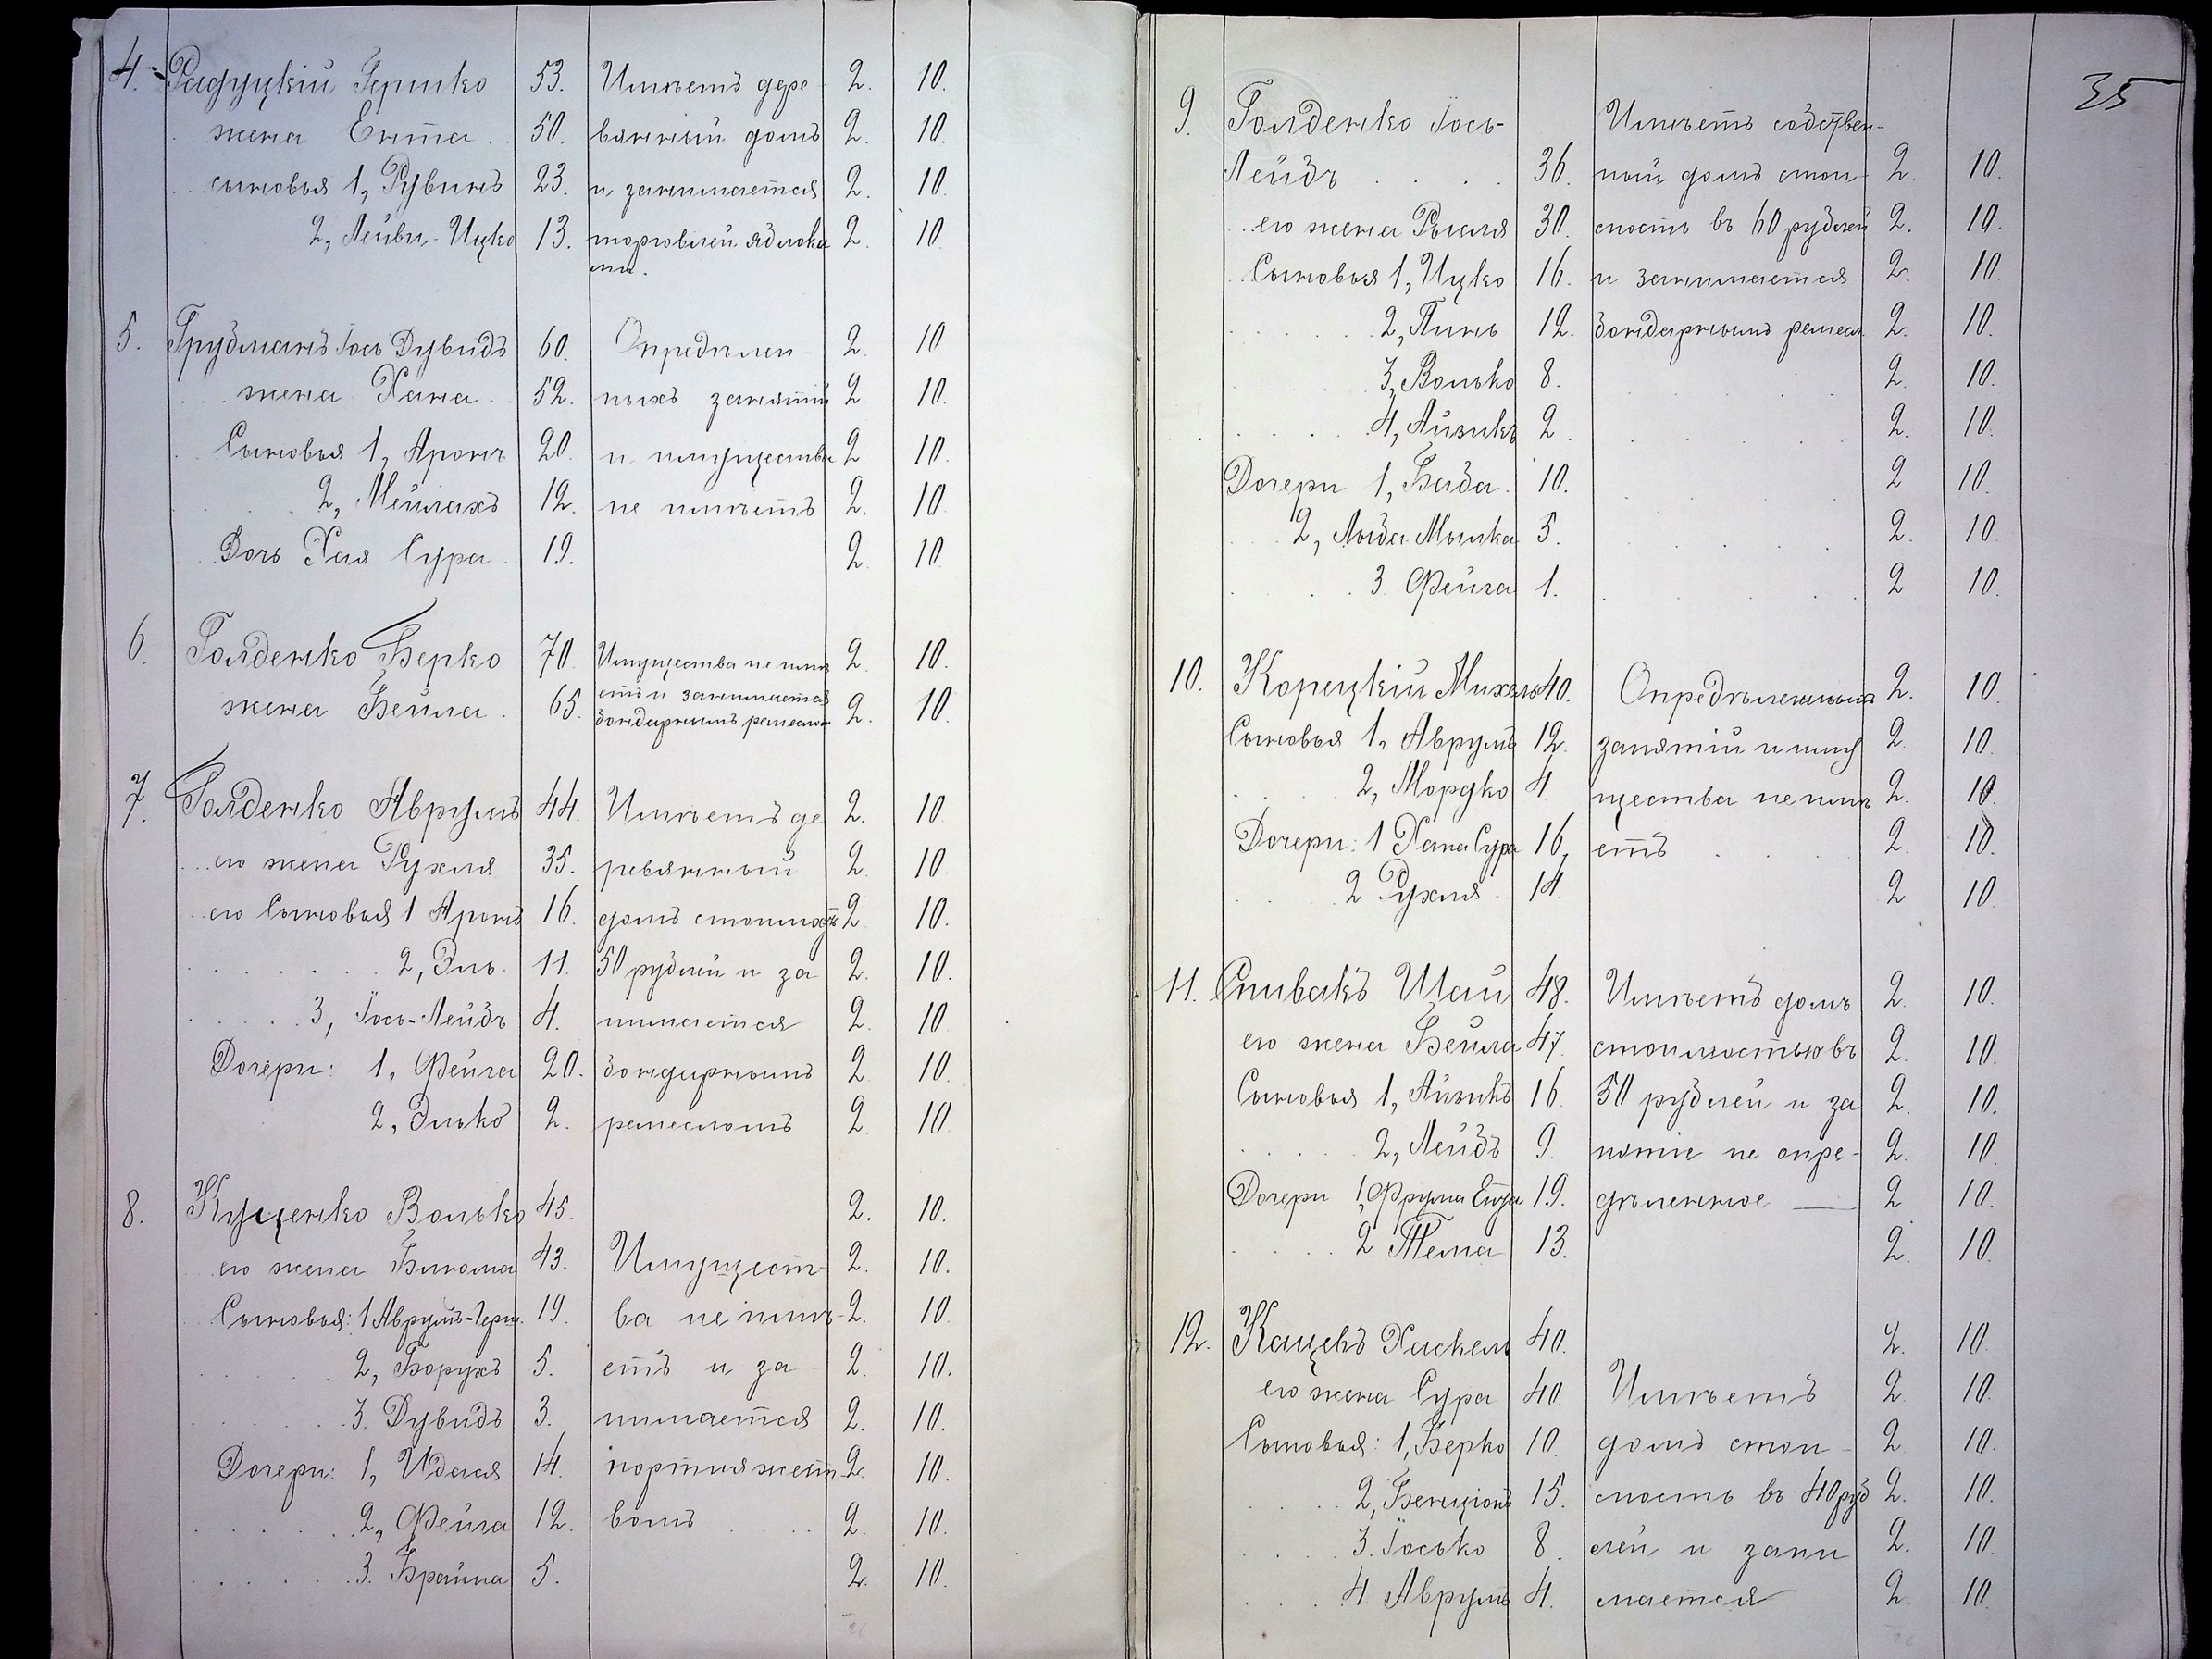 4. Радуцкій Гершко 53. Имѣетъ дере- 2. 10.
жена Ента 50. вянный домъ 2. 10.
сыновья 1, Рувинъ 23. и занимается 2. 10.
2, Лейви-Ицко 13. торговлей яблока 2. 10.
ми.
5. Грубманъ Іось Дувидъ 60. Опредѣлен- 2. 10
жена Хана 52. ныхъ занятій 2. 10.
Сыновья 1, Аронъ 20. и имущества 2. 10.
2, Мейлахъ 12. не имѣетъ 2. 10
Дочь Хая Сура 19. 2. 10
6. Голденко Берко 70. Имущества не имѣ 2. 10.
етъ и занимается
жена Бейла 65. бондарнымъ ремесло 2. 10.
7. Голденко Аврумъ 44. Имѣетъ де 2. 10.
его жена Рухля 35. ревянный 2. 10.
его Сыновья 1 Аронъ 16. домъ стоимость 2. 10.
2, Эль 11. 50 рублей и за 2. 10.
3, Іось-Лейбъ 4. нимается 2. 10
Дочери: 1, Фейга 20. бондарнымъ 2 10.
2, Элько 2. ремесломъ 2. 10
8. Куценко Волько 45. 2. 10.
его жена Бинома 43. Имущест- 2. 10.
Сыновья: 1 Аврумъ-Герш. 19. ва не имѣ- 2. 10
2, Борухъ 5. етъ и за- 2. 10.
3. Дувидъ 3. нимается 2. 10.
Дочери: 1, Идася 14. портняжест- 2. 10.
2, Фейга 12. вомъ 2. 10.
3. Брайна 5. 2. 10.
35
9. Голденко Іось- Имѣетъ собствен-
Лейбъ 36. ный домъ стои- 2. 10.
его жена Рысля 30. мость въ 60 рублей 2. 10.
Сыновья 1, Ицко 16. и занимается 2. 10.
2, Пинь 12. бондарнымъ ремесл 2. 10.
3, Волько 8. 2. 10.
4, Айзикъ 2. 2. 10.
Дочери 1, Баба 10. 2 10.
2, Лыба Мышка 5. 2. 10.
3. Фейга 1. 2 10.
10. Корецкій Михель 40. Опредѣленныхъ 2. 10.
Сыновья 1, Аврумъ 12. занятій и иму 2. 10.
2, Мордко 4 щества не имѣ 2. 10.
Дочери: 1 Хана Сура 16. етъ 2. 10.
2 Рухля 14. 2 10.
11. Спивакъ Шай 48. Имѣетъ домъ 2. 10.
его жена Бейла 47. стоимостью въ 2. 10.
Сыновья 1, Айзикъ 16. 50 рублей и за 2. 10.
2, Лейбъ 9. нятіе не опре- 2. 10.
Дочери 1, Фрума Ента 19. дѣленное 2 10.
2 Тема 13. 2. 10.
12. Кацевъ Хаскель 40. 2. 10.
его жена Сура 40. Имѣетъ 2. 10.
Сыновья: 1, Берко 10. домъ стои- 2. 10.
2, Бенціонъ 15. мость въ 40 руб 2. 10.
3. Іосько 8. лей и зани 2. 10.
4. Аврумъ 4. мается 2. 10.